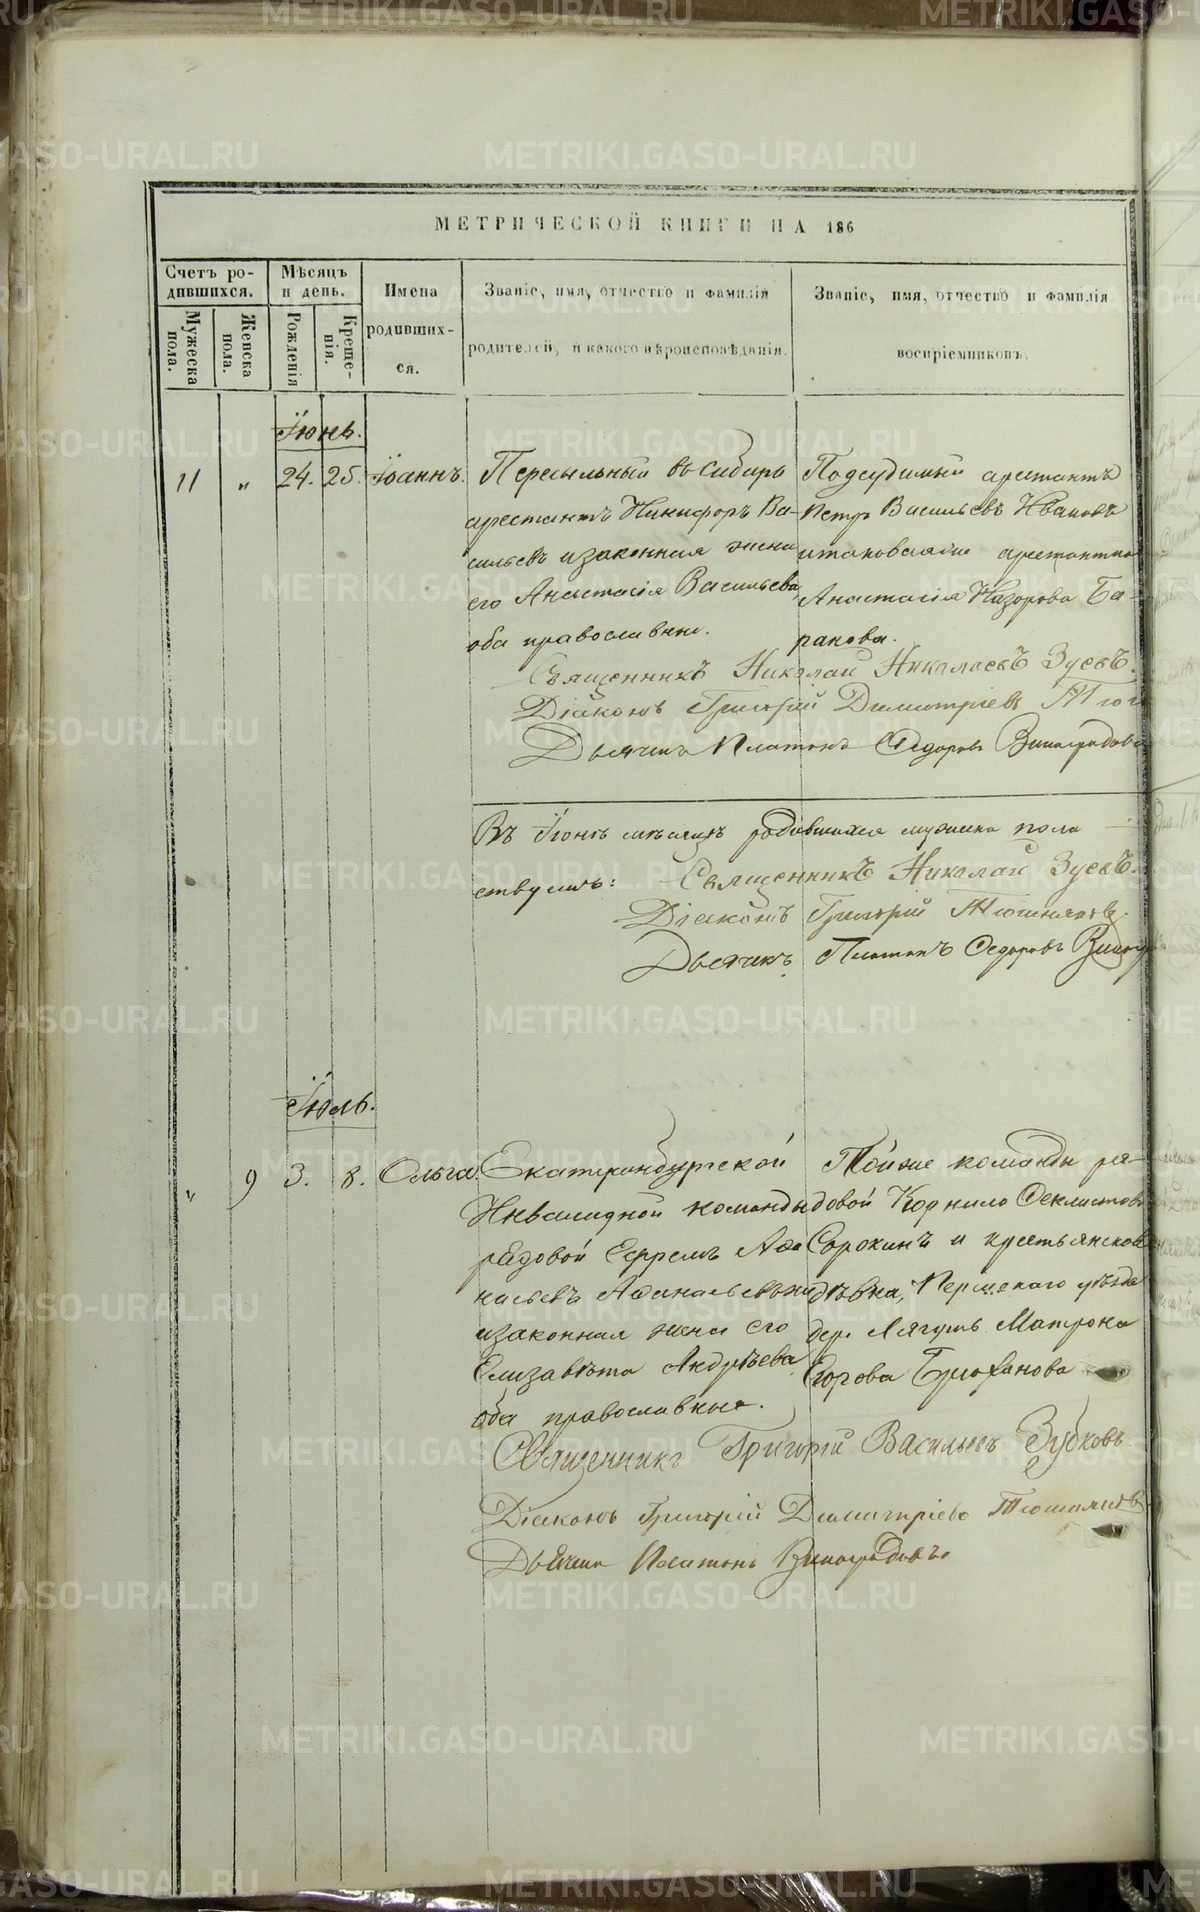 МЕТРИЧЕСКОЙ КНИГИ НА 186
Счетъ ро-
дившихся.
Мѣсяцъ
и день.
Имена
родивших-
ся.
Званіе, имя, отчество и фамилія
родителей, и какого вѣроисповѣданія.
Званіе, имя, отчество и фамилія
воспріемниковъ.
Мужеска
пола.
Женска
пола.
Рожденія
Креще-
нія.
Іюнь.
11 „ 24. 25. Іоаннъ.
Пересыльный въ Сибирь
арестантъ Никифоръ Ва-
сильевъ и законная жена
его Анастасія Васильева,
оба православные.
Подсудимый арестантъ
Петръ Васильевъ Ивановъ
и таковая же арестантка
Анастасія Назарова Ба-
ранова.
Священникъ Николай Николаевъ Зуевъ.
Діаконъ Григорій Димитріевъ
Дьячекъ Платонъ Ѳедоровъ Виноградовъ
Въ Іюнѣ мѣсяцѣ родившихся мужеска пола
Священникъ Николай Зуевъ.
Діаконъ Григорій Тюшняковъ.
Дьячекъ Платонъ Ѳедоровъ
Іюль.
„ 9 3. 8. Ольга.
Екатеринбургской
Инвалидной команды
рядовой Ефремъ Аѳа
насьевъ
и законная жена его
Елизавета Андрѣева
оба православные.
Той же команды ря-
довой Корнило Ѳеклистовъ
Сорокинъ и крестьянская
дѣвка, Пермскаго уѣзда
дер. Матрона
Егорова
Священникъ Григорій Васильевъ Зубковъ
Діаконъ Григорій Димитріевъ Тюшняковъ
Дьячекъ Платонъ Виноградовъ
METRIKI.GASO-URAL.RU